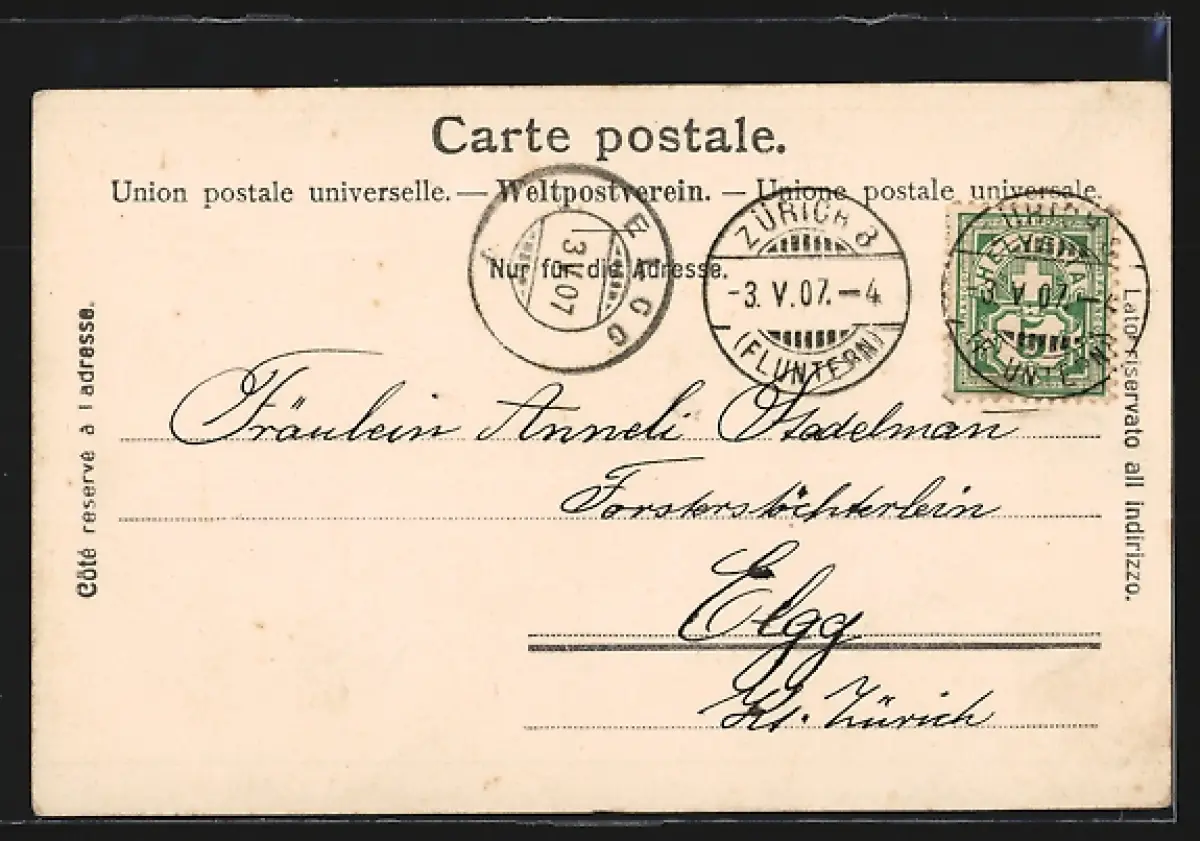 Carte postale.
Union postale universelle. — Weltpostverein. — Unione postale universale.
Nur für die Adresse.
ELGG
3 V 07
ZÜRICH 8
-3. V. 07. – 4
(FLUNTERN)
HELVETIA
5
Côté reservé à l adresse.
Lato riservato all indirizzo.
Fräulein Anneli Stadelman
Försterstöchterlein
Elgg
Kt. Zürich